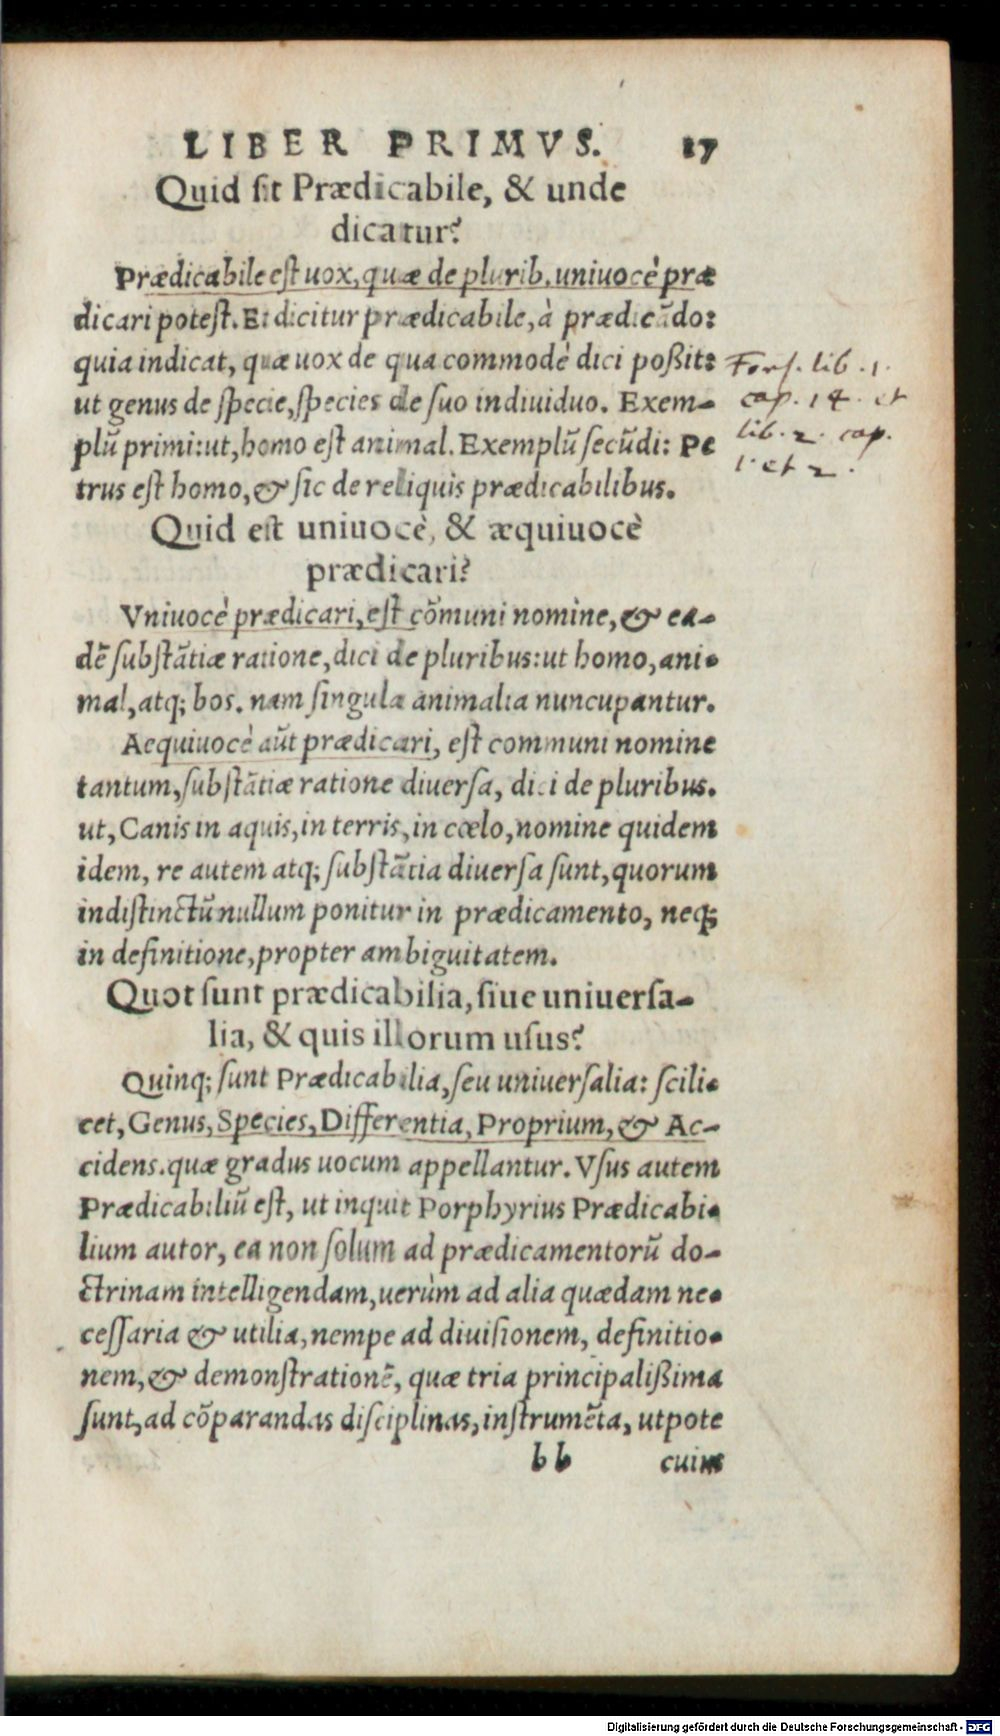 LIBER PRIMVS. 17
Quid sit Prædicabile, & unde
dicatur?
Prædicabile est uox, quæ de plurib. uniuocè præ
dicari potest. Et dicitur prædicabile, à prædicãdo:
quia indicat, quæ uox de qua commodè dici poßit:
ut genus de specie, species de suo indiuiduo. Exem-
plũ primi: ut, homo est animal. Exemplũ secũdi: Pe
trus est homo, & sic de reliquis prædicabilibus.
Fors. lib. 1.
cap. 14. et
lib. 2. cap.
1. et 2.
Quid est uniuocè, & æquiuocè
prædicari?
Vniuocè prædicari, est cõmuni nomine, & ea-
dẽ substãtiæ ratione, dici de pluribus: ut homo, ani-
mal, atq; bos. nam singula animalia nuncupantur.
Aequiuocè aũt prædicari, est communi nomine
tantum, substãtiæ ratione diuersa, dici de pluribus.
ut, Canis in aquis, in terris, in cœlo, nomine quidem
idem, re autem atq; substãtia diuersa sunt, quorum
indistinctũ nullum ponitur in prædicamento, neq;
in definitione, propter ambiguitatem.
Quot sunt prædicabilia, siue uniuersa-
lia, & quis illorum usus?
Quinq; sunt Prædicabilia, seu uniuersalia: scili-
cet, Genus, Species, Differentia, Proprium, & Ac-
cidens. quæ gradus uocum appellantur. Vsus autem
Prædicabiliũ est, ut inquit Porphyrius Prædicabi-
lium autor, ea non solum ad prædicamentorũ do-
ctrinam intelligendam, uerùm ad alia quædam ne-
cessaria & utilia, nempe ad diuisionem, definitio-
nem, & demonstrationẽ, quæ tria principalißima
sunt, ad cõparandas disciplinas, instrumẽta, utpote
bb cuius
Digitalisierung gefördert durch die Deutsche Forschungsgemeinschaft - DFG